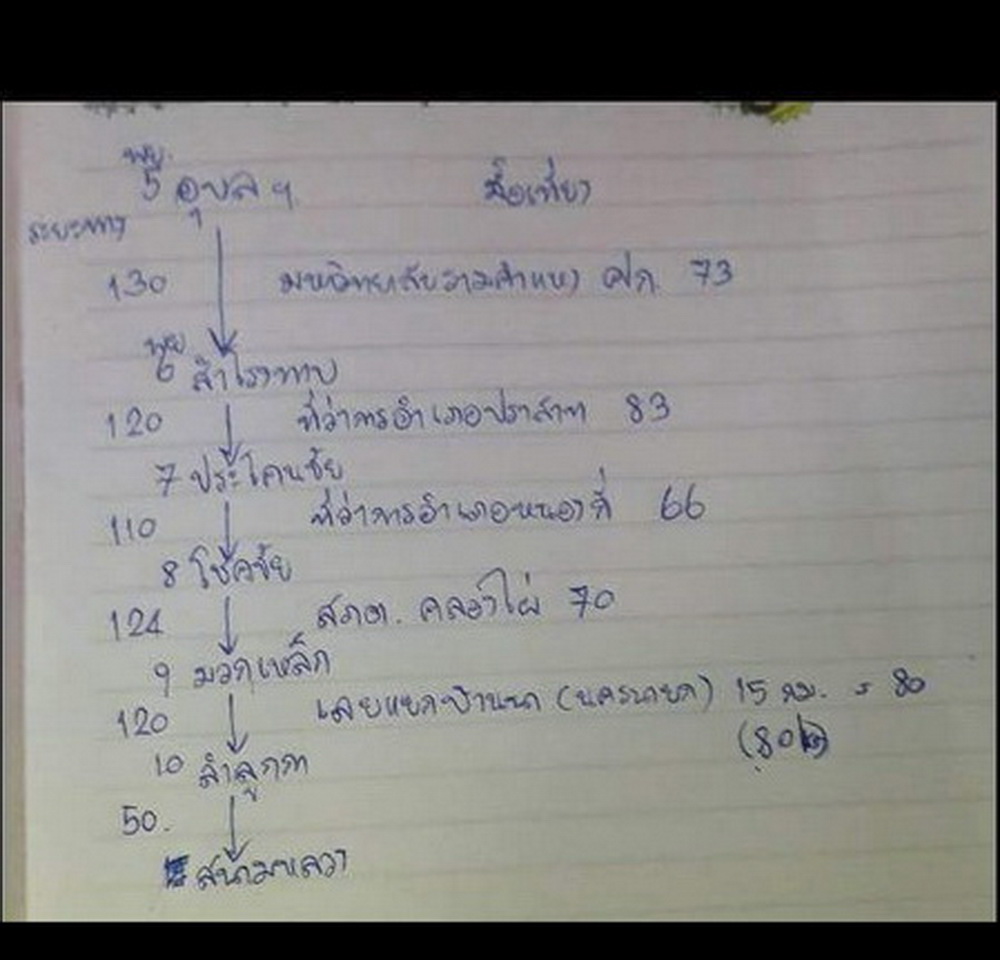 พย.
5 อุบลฯ มื้อเที่ยง
ระยะทาง
130 มหาวิทยาลัยรามคำแหง ศภ. 73
พย
6 สำโรงทาบ
120 ที่ว่าการอำเภอปราสาท 83
7 ประโคนชัย
110 ที่ว่าการอำเภอหนองกี่ 66
8 โชคชัย
124 สภต. คลองไผ่ 70
9 มวกเหล็ก
120 เลยแยกบ้านนา (นครนายก) 15 กม. = 80
(80
10 ลำลูกกา
50.
สนามหลวง